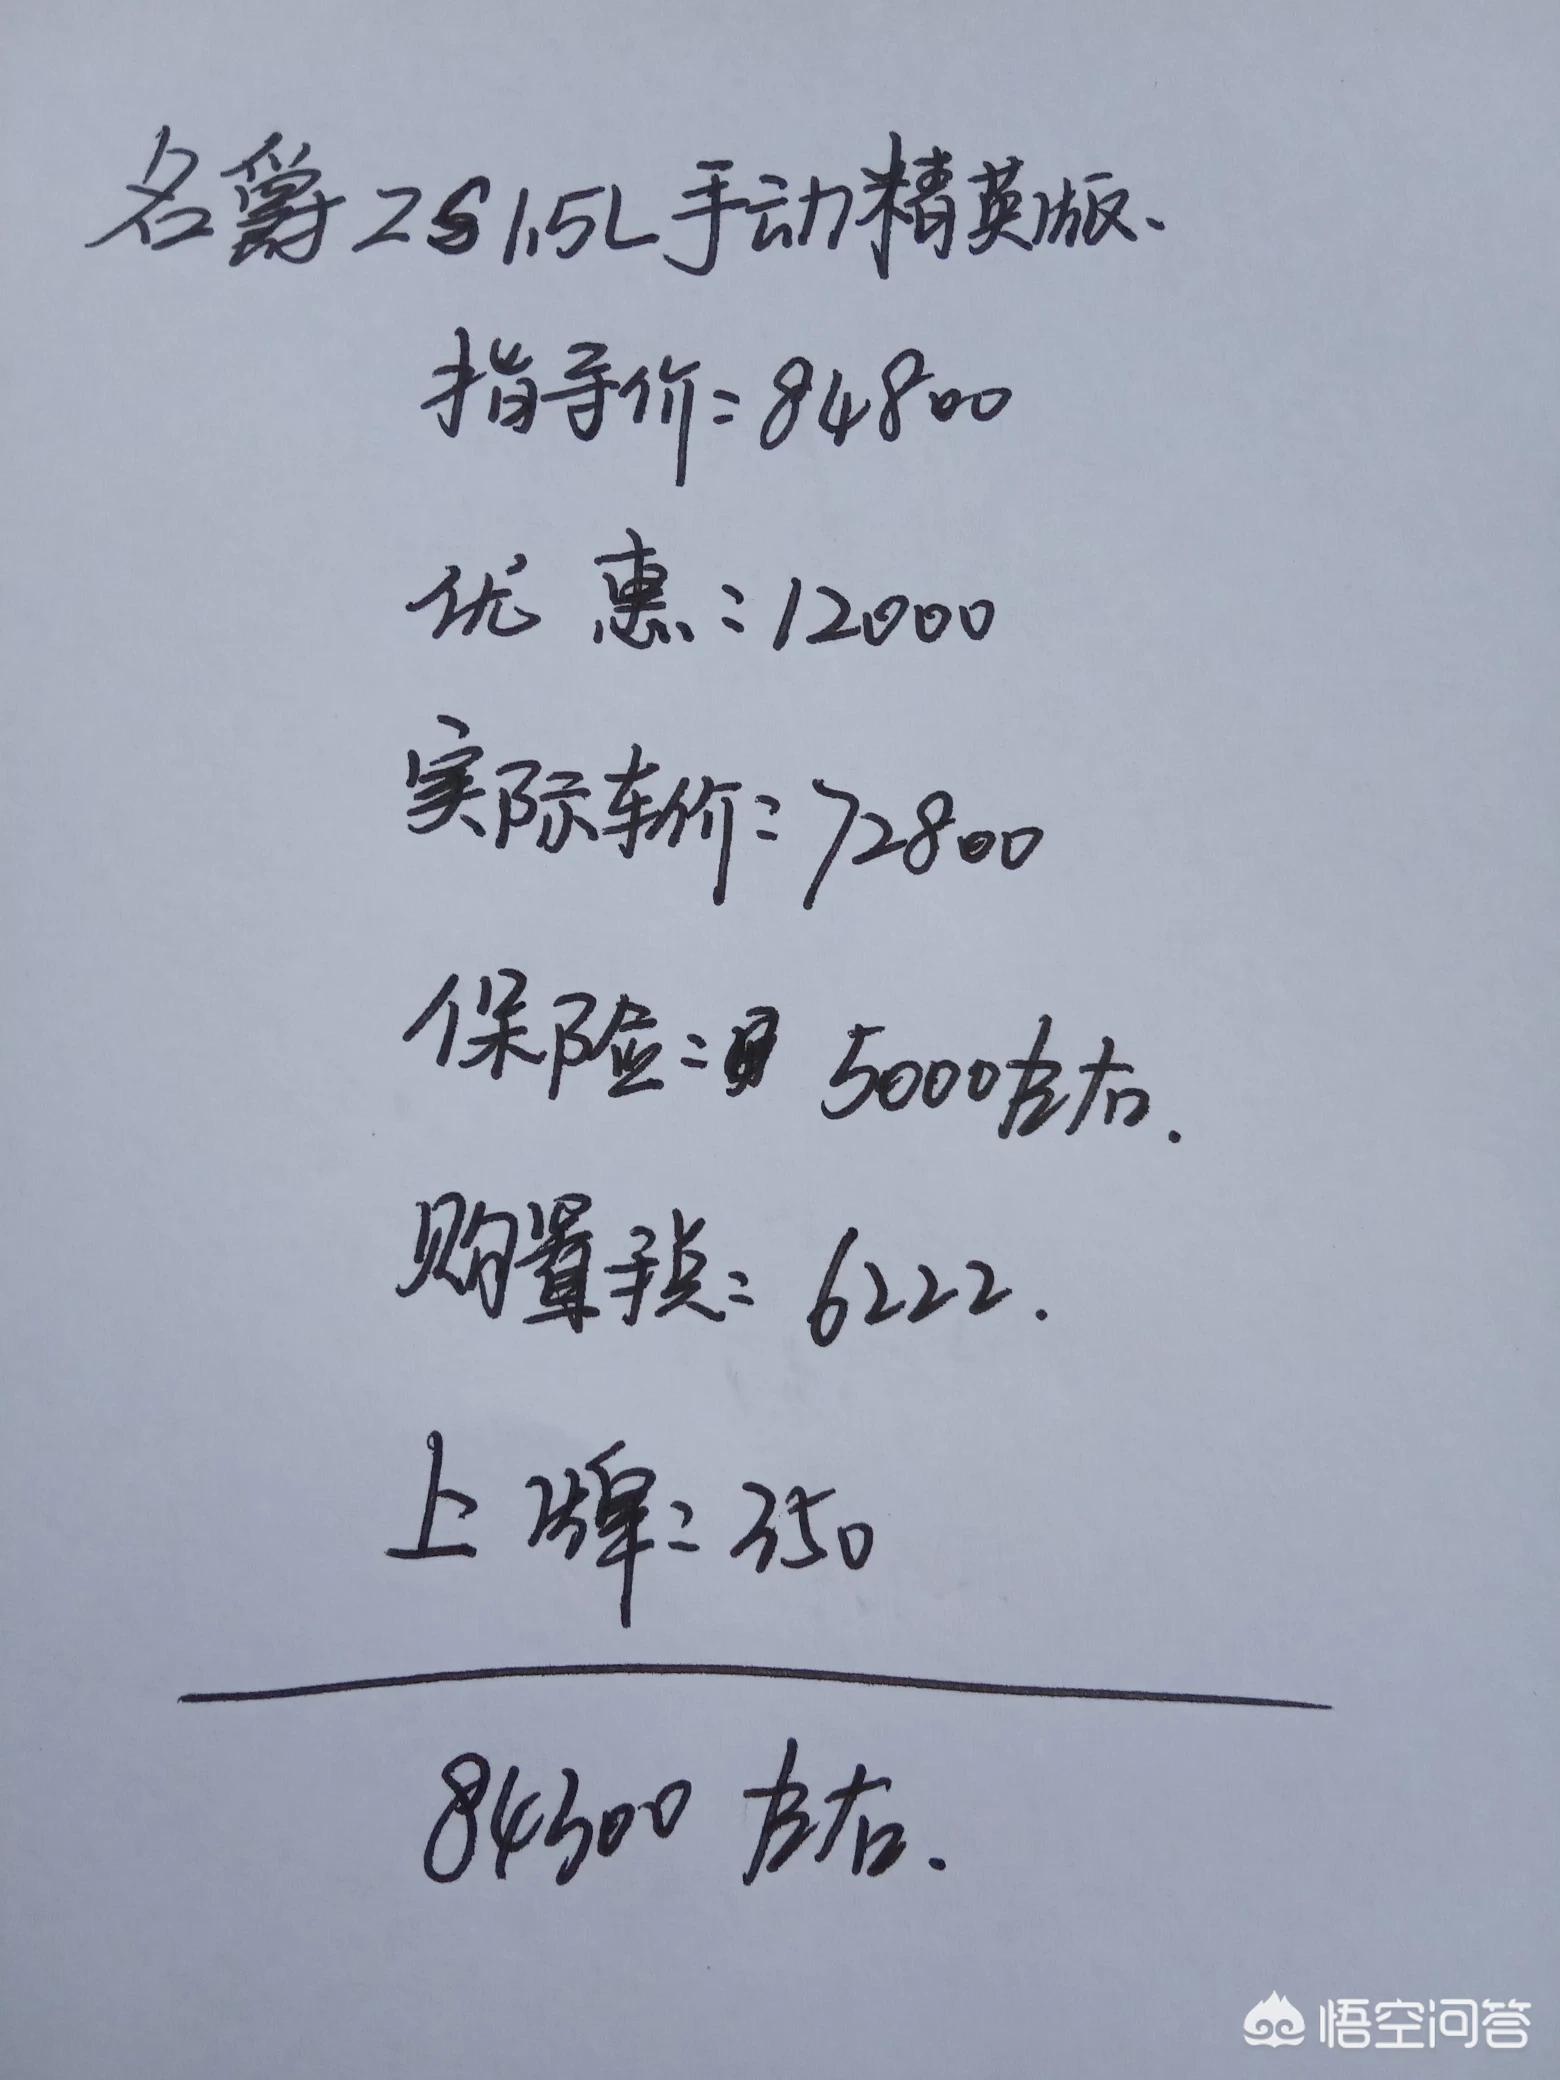 名爵ZS1.5L手动精英版、
指导价：84800
优惠：12000
实际车价：72800
保险： 5000左右.
购置税：6222.
上牌：350
84300左右.
悟空问答